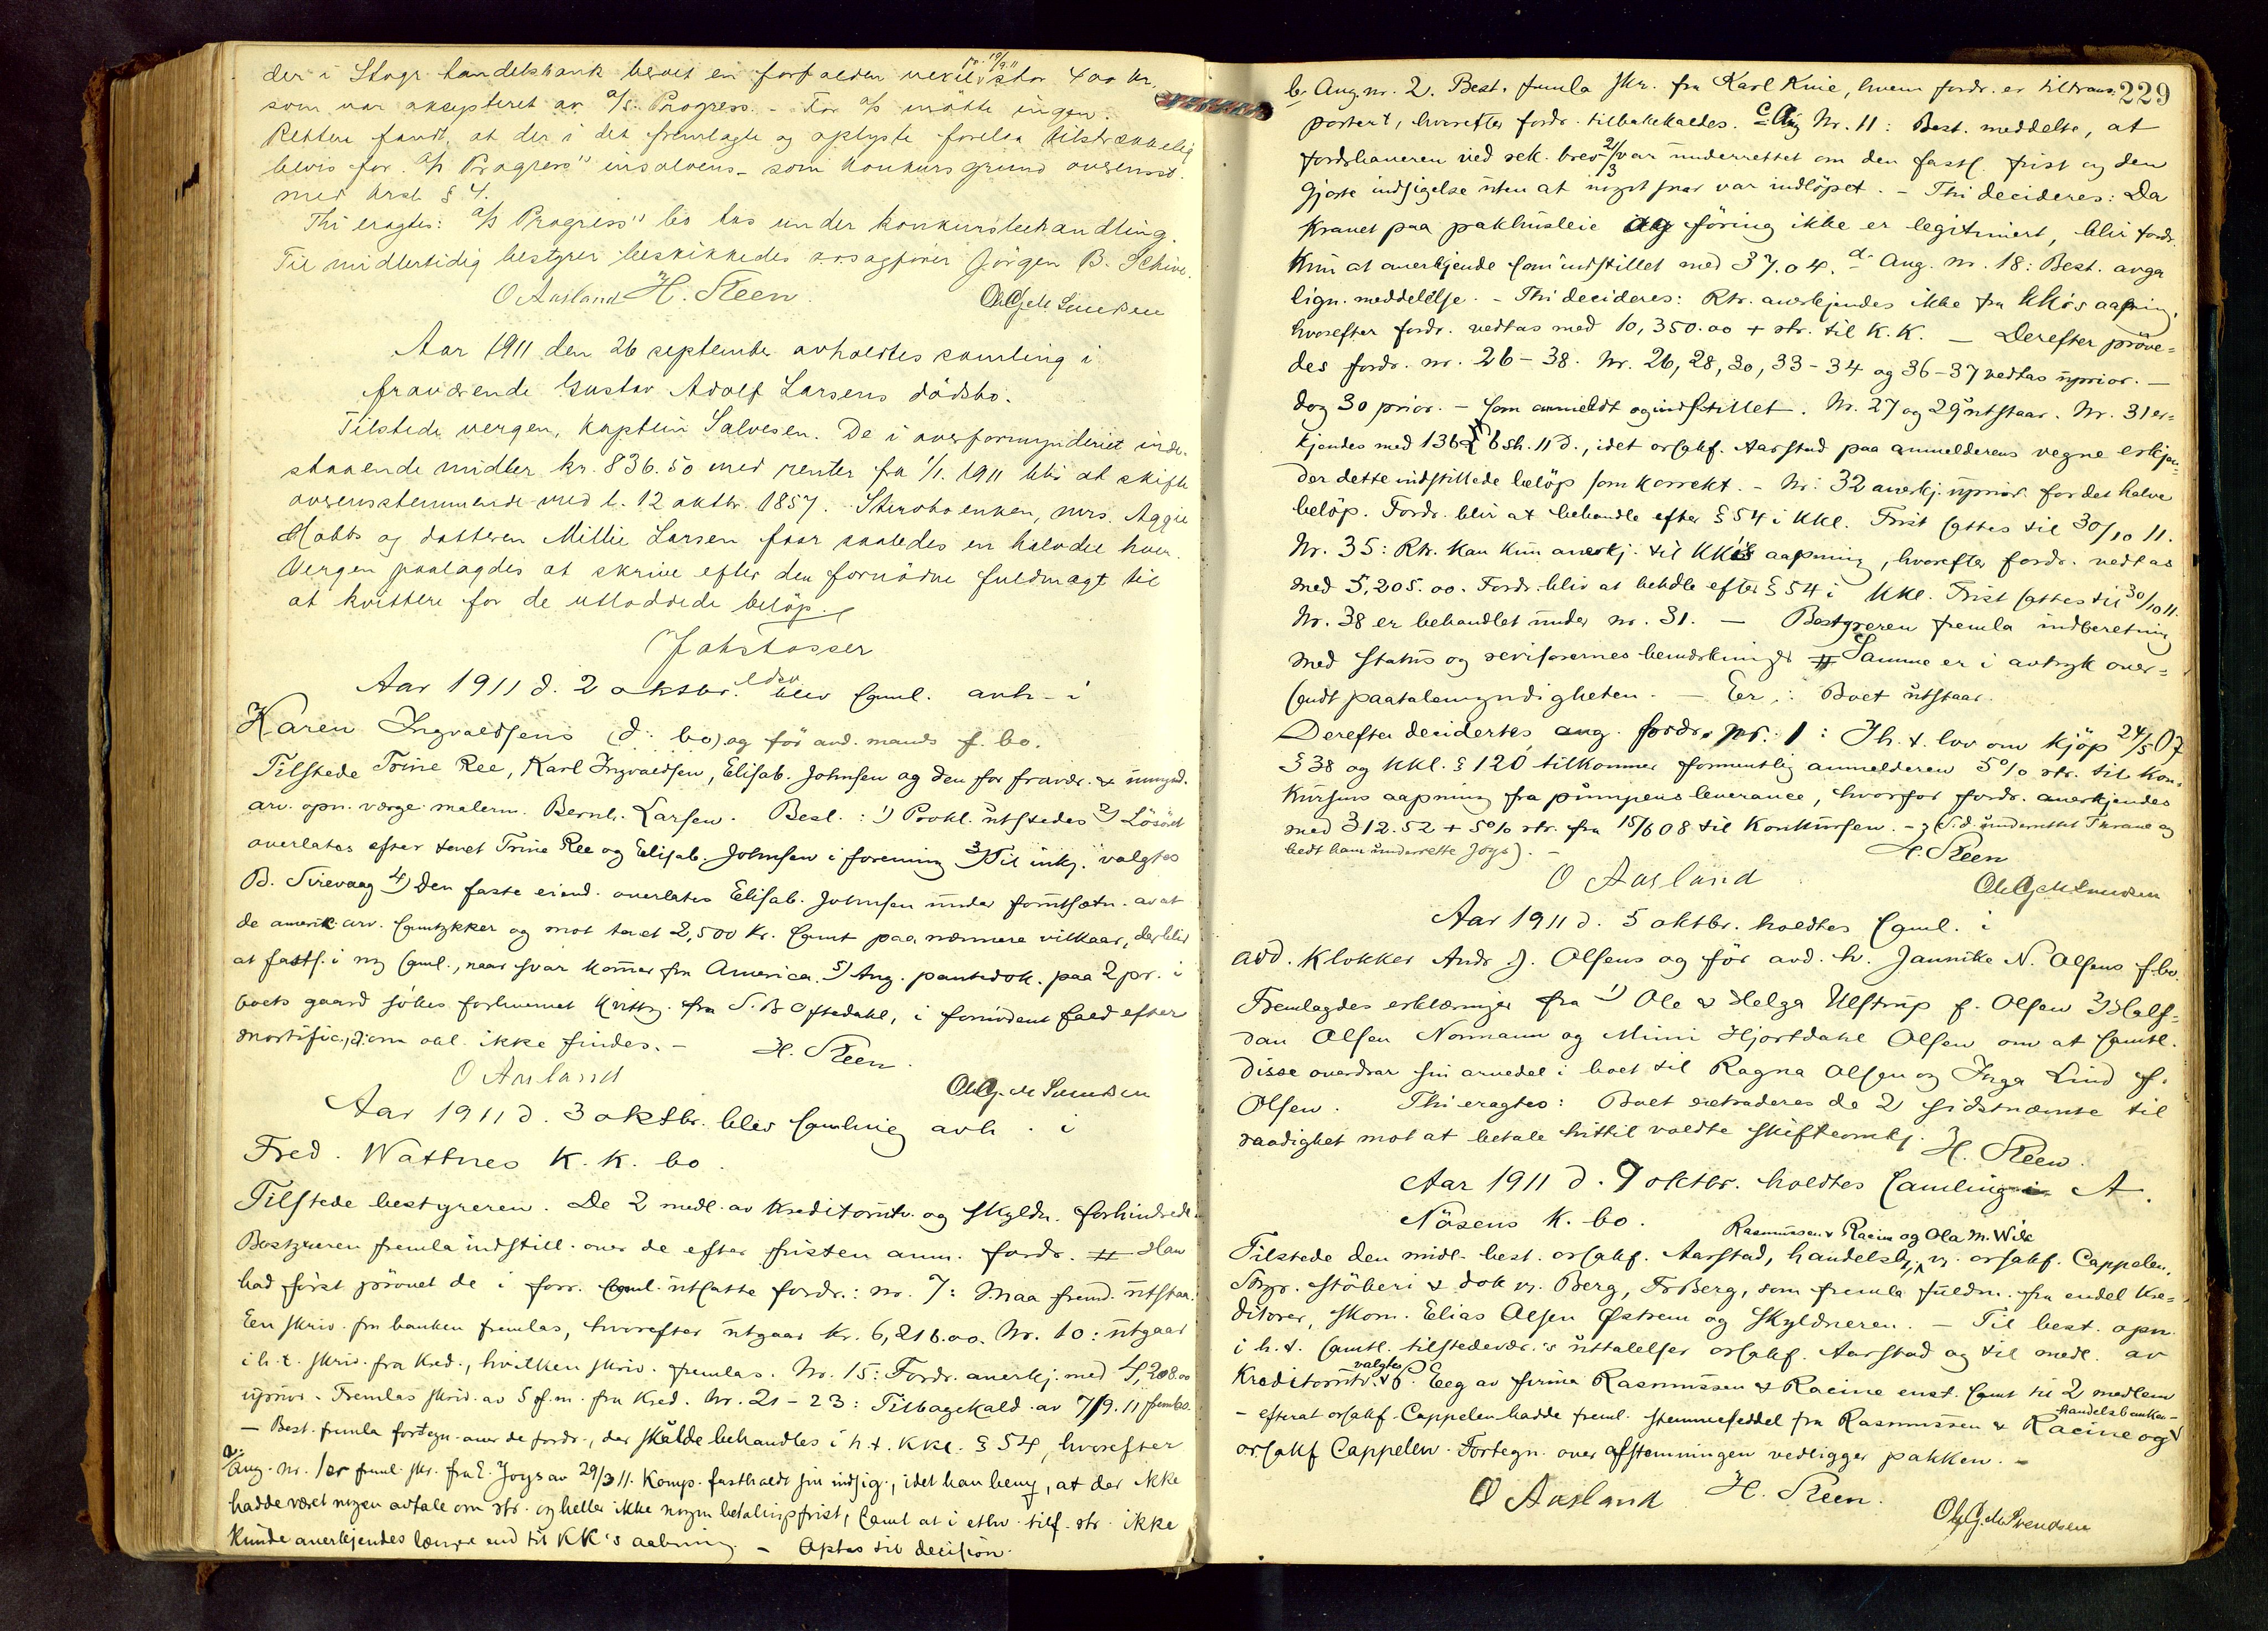 der i Stvgr. handelsbank beroet en forfalden veksel pr. 19/9 11 stor 400 kr.
som var aksepteret av A/S. Progress. - For A/S mötte ingen.
Retten fandt, at der i det fremlagte og oplyste forelaa tilstrækkelig
bevis for "A/S Progress" insolvens - som konkursgrund overensst.
med krsl. § 4.
Thi eragtes: A/S Progress" bo tas under konkursbehandling.
Til midlertidig bestyrer beskikkedes o.r.sagfører Jörgen B. Schive.
O Aasland H. Steen. Ole G. M. Svendsen
Aar 1911 den 26 september avholdtes samling i
fraværende Gustav Adolf Larsens dödsbo.
Tilstede vergen, kaptein Salvesen. De i overformynderiet inde-
staaende midler kr. 836.50 med renter fra 1/1. 1911 blir at skifte
overensstemmende med l. 12 oktbr. 1857. Steboenken, mrs. Aggie
Mobbs og datteren Millie Larsen faar saaledes en halvdel hver.
Vergen paalagdes at skrive efter den fornödne fuldmagt til
at kvittere for de utloddede belöp.
Aar 1911 d. 2 oktbr. blev saml. avh. i
Karen Ingvaldsens (d: bo) og för avd. mands f. bo.
Tilstede Trine Ree, Karl Ingvaldsen, Elisab. Johnsen og den for fravær. & umynd.
arv. opn. værge malerm. Bernh. Larsen. Besl.: 1) Prokl. utstedes 2) Lösöret
overlates efter taxt Trine Ree og Elisab. Johnsen i forening 3) Til inkj. valgtes
B. Sirevaag 4) Den faste eiend. overlates Elisab. Johnsen under forutsætn. av at
de amerik. arv. samtykker og mot taxt 2,500 Kr. samt paa nærmere vilkaar, der blir
at fasts. i ny saml., naar svar kommer fra America. 5) Ang. pantedok. paa 2 pr. i
boets gaard sökes forhvervet kvittg. fra S. B. Oftedahl, i fornödent fald efter
mortific., dersom obl. ikke findes. - H. Steen.
O Aasland Ole G. M. Svendsen
Aar 1911 d. 3 oktbr. blev samling avh. i
Fred. Wattnes K. K. bo.
Tilstede bestyreren. De 2 medl. av kreditorutv. og skyldn. forhindrede.
Bestyreren fremla indstill. over de efter fristen anm. fordr. # Han
had först prövet de i forr. saml. utsatte fordr.: nr. 7: Maa fremd. utstaa.
Een skriv. fra banken fremlas, hvorefter utgaar kr. 6,216.00. Nr. 10: utgaar
i h. t. skriv. fra kred., hvilken skriv. fremlas. Nr. 15: Fordr. anerkj. med 4,208.00
uprior. Fremlas skriv. av 5 d. m. fra kred. Nr. 21 - 23: Tilbagekald. av 7/9. 11 fremlas.
- Best. fremla fortegn. over de fordr., der skulde behandles i h. t. kkl. § 54, hvorefter
a: Ang. nr. 1 er freml. skr. fra E. Joys av 29/3 11. Komp. fastholdt sin indsig., idet han bem., at der ikke
hadde været nogen avtale om rtr. og heller ikke nogen betalingsfrist, samt at i ethv. tilf. rtr. ikke
kunde anerkjendes længre end til KK's aabning. - Optas til decision.
229
b. Ang. nr. 2. Best. fremla skr. fra Karl Kine, hvem fordr. er tiltrans-
portert, hvorefter fordr. tilbakekaldes. c. Ang. Nr. 11: Best. meddelte, at
fordrhaveren ved rek. brev 2/3 var underrettet om den fasts. frist og den
gjorte indsigelse uten at noget svar var indlöpet. - Thi decideres: Da
kravet paa pakhusleie og föring ikke er legitimert, blir fordr.
kun at anerkjende som indstillet med 37.04. d. Ang. nr. 18: Best. avga
lign. meddelelse. - Thi decideres: Rtr. anerkjendes ikke fra kk's aapning,
hvorefter fordr. vedtas med 10,350.00 + rtr. til K.K. - Derefter pröve-
des fordr. nr. 26 - 38. Nr. 26, 28, 30, 33 - 34 og 36 - 37 vedtas uprior. -
dog 30 prior. - som anmeldt og indstillet. Nr. 27 og 29 utstaar. Nr. 31 er-
kjendes med 136 £ 6 sh. 11 d., idet orsakf. Aarstad paa anmelderens vegne erkjen-
der dette indstillede belöp som korrekt. - Nr. 32 anerkj. uprior. for det halve
belöp. Fordr. blir at behandle efter § 54 i kkl. Frist sattes til 30/10 11.
Nr. 35: Rtr. kan kun anerkj. til KK's aapning, hvorefter fordr. vedtas
med 5,205.00. Fordr. blir at behdle efter § 54 i kkl. Frist sattes til 30/10 11.
Nr. 38 er behandlet under nr. 31. - Bestyreren fremla indberetning
med status og revisorernes bemerkninger # Samme er i avtryk over-
sendt paatalemyndigheten. - Eer: Boet utstaar.
Derefter decidertes ang. fordr. nr. 1: I h. t. lov om kjöp 24/5 07
§ 38 og kkl. § 120 tilkommer formentlig anmelderen 5% rtr. til kon-
kursens aapning fra pumpens leverance, hvorfor fordr. anerkjendes
med 312.52 + 5% rtr. fra 15/6 08 til konkursen. - (S.d. underrettet Thrane og
bedt ham underrette Joys). - H. Steen
O Aasland Ole G. M. Svendsen
Aar 1911 d. 5 oktbr. holdtes saml. i
avd. Klokker Andr. J. Olsens og för avd. h. Jannike N. Olsens f. bo.
Fremlagdes erklæringer fra 1) Ole & Helga Ulstrup f. Olsen 2) Half-
dan Olsen Normann og Mimi Hjortdahl Olsen om at samtl.
disse overdrar sin arvedel i boet til Ragna Olsen og Inga Lind f.
Olsen. Thi eragtes: Boet extraderes de 2 sidstnævnte til
raadighet mot at betale hittil voldte skifteomkj. H. Steen.
Aar 1911 d. 9 oktbr. holdtes samling i A.
Näsens k. bo.
Rasmussen & Racine og Ola M. Wik
Tilstede den midl. best. orsakf. Aarstad, handelsb. v. orsakf. Cappelen,
Stvgr. stöberi & dok v. Berg, Fr Berg, som fremla fuldm. fra endel kre-
ditorer, skom. Elias Olsen Östrem og skyldneren. - Til best. opn.
i h. t. samtl. tilstedevær.'s uttalelser orsakf. Aarstad og til medl. av
kreditorutv. valgtes P. Eeg av firma Rasmussen & Racine enst. samt til 2 medlem
- efterat orsakf. Cappelen hadde freml. stemmeseddel fra Rasmussen & Racine og handelsbanken -
orsakf Cappelen. Fortegn. over afstemningen vedligger pakken. -
O Aasland H. Steen. Ole G. M. Svendsen